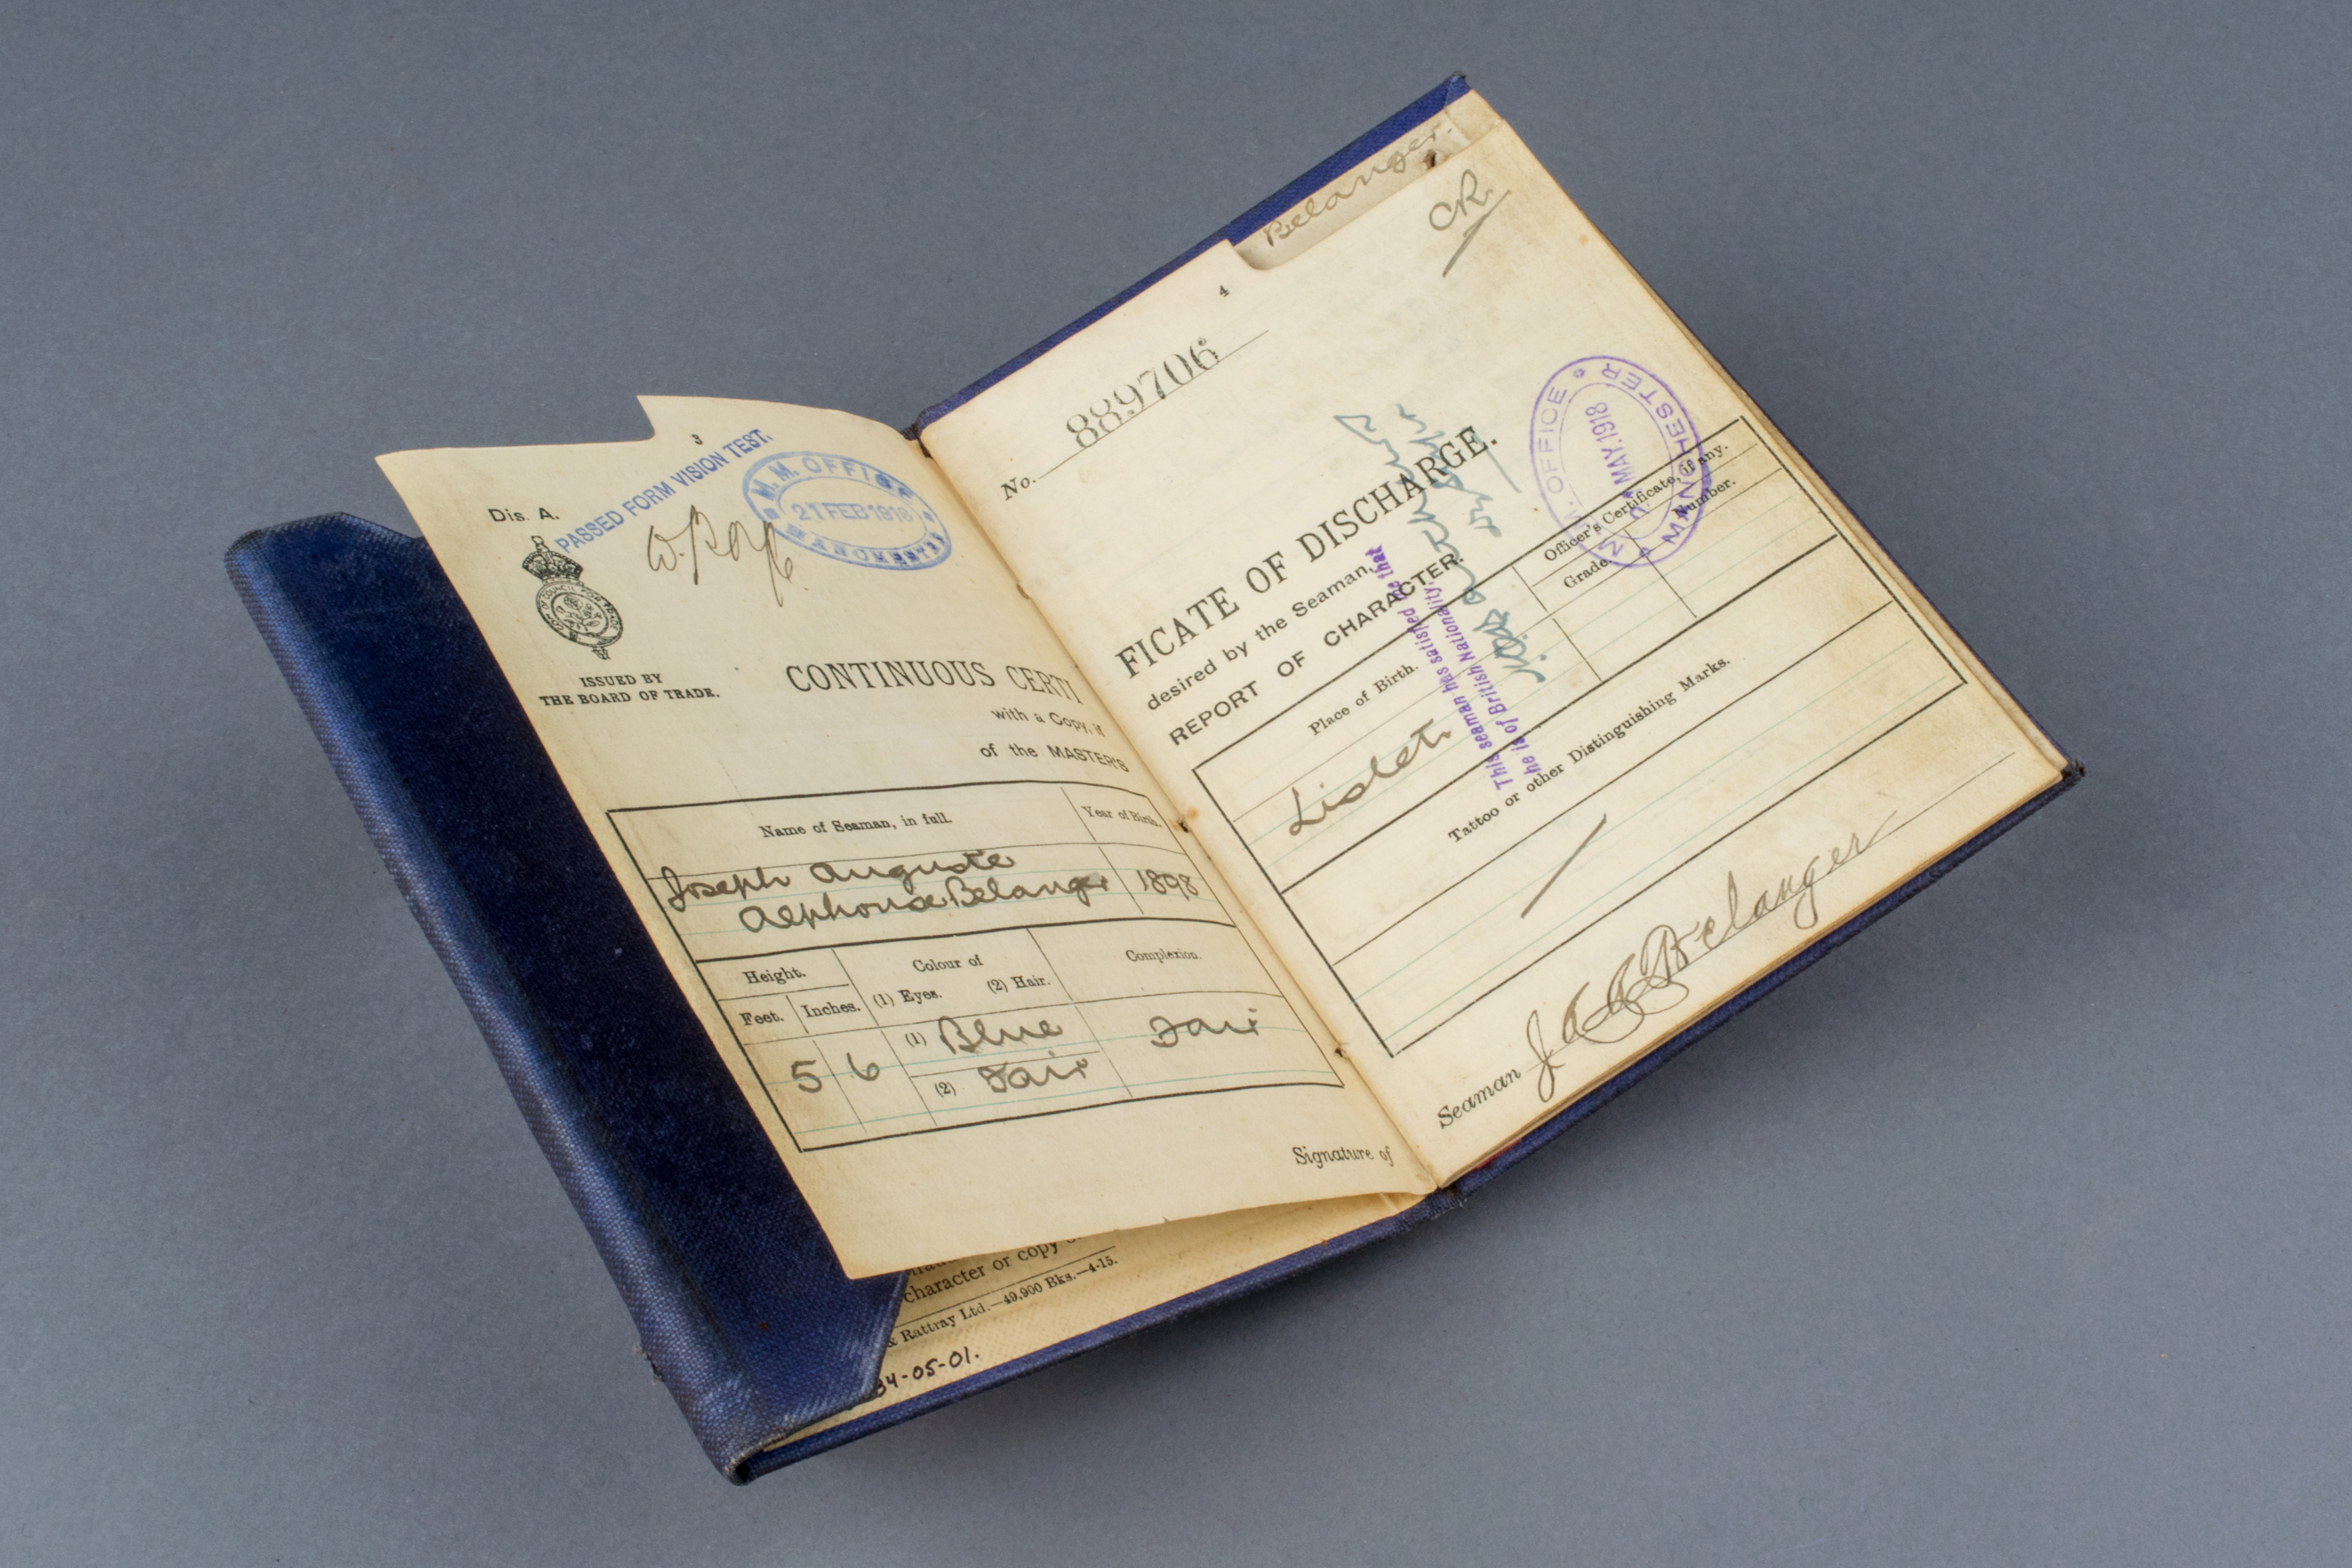 3
Dis. A.
PASSED FORM VISION TEST.
M. M. OFFICE
21 FEB 1918
ISSUED BY
THE BOARD OF TRADE.
CONTINUOUS CERTI
with a Copy, if
of the MASTER'S
Name of Seaman, in full.
Year of Birth.
Joseph Auguste
Alphonse Belanger
1898
Height.
Colour of
Complexion.
Feet.
Inches.
(1) Eyes.
(2) Hair.
5
6
(1) Blue
(2) Fair
Fair
Signature of
character or copy
& Rattray Ltd.—49,900 Bks.—4-15.
94-05-01.
Belanger.
CR.
4
No. 889706
FICATE OF DISCHARGE.
desired by the Seaman,
REPORT OF CHARACTER.
M. M. OFFICE
MAY.1918
MANCHESTER
This seaman has satisfied me that
he is of British Nationality.
Place of Birth.
Officer's Certificate, if any.
Grade.
Number.
Lislet.
Tattoo or other Distinguishing Marks.
Seaman J A A Belanger